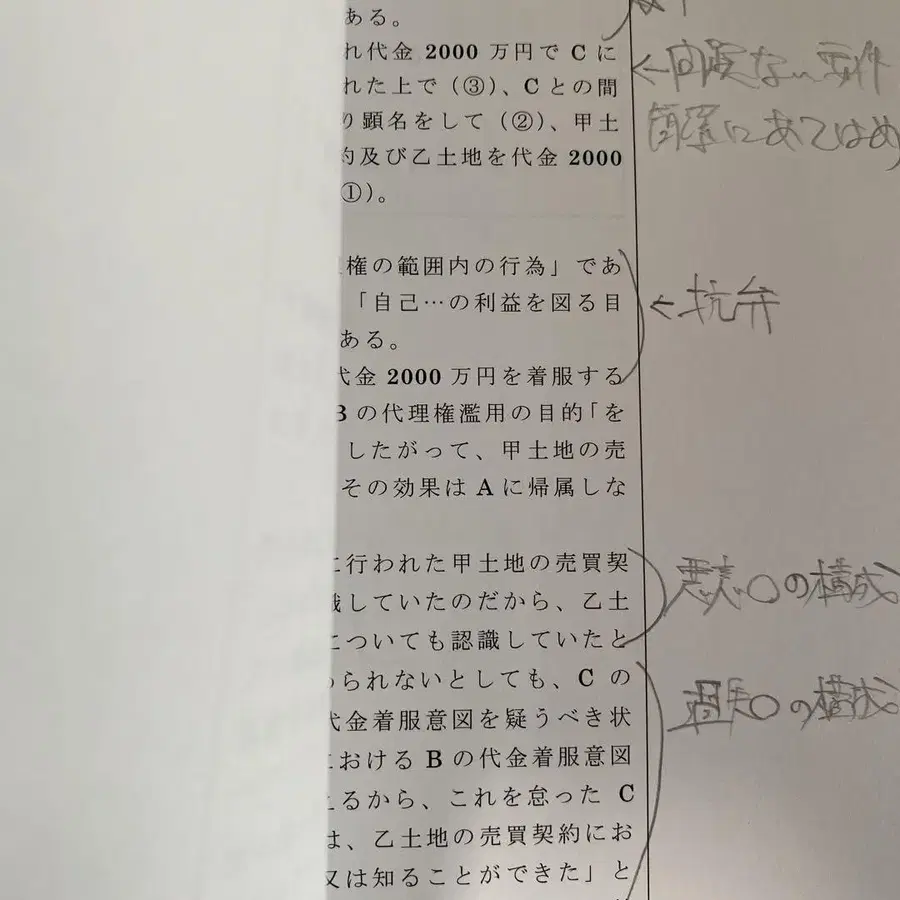 ある。
れ代金 2000 万円で C に
れた上で（③）、C との間
り顕名をして（②）、甲土
約及び乙土地を代金 2000
①）。
権の範囲内の行為」であ
「自己…の利益を図る目
ある。
代金 2000 万円を着服する
B の代理権濫用の目的「を
したがって、甲土地の売
その効果は A に帰属しな
に行われた甲土地の売買契
識していたのだから、乙土
についても認識していたと
められないとしても、C の
代金着服意図を疑うべき状
における B の代金着服意図
えるから、これを怠った C
は、乙土地の売買契約にお
又は知ることができた」と
←問題ない要件
簡潔にあてはめ
←抗弁
悪意〇の構成。
過失〇の構成。